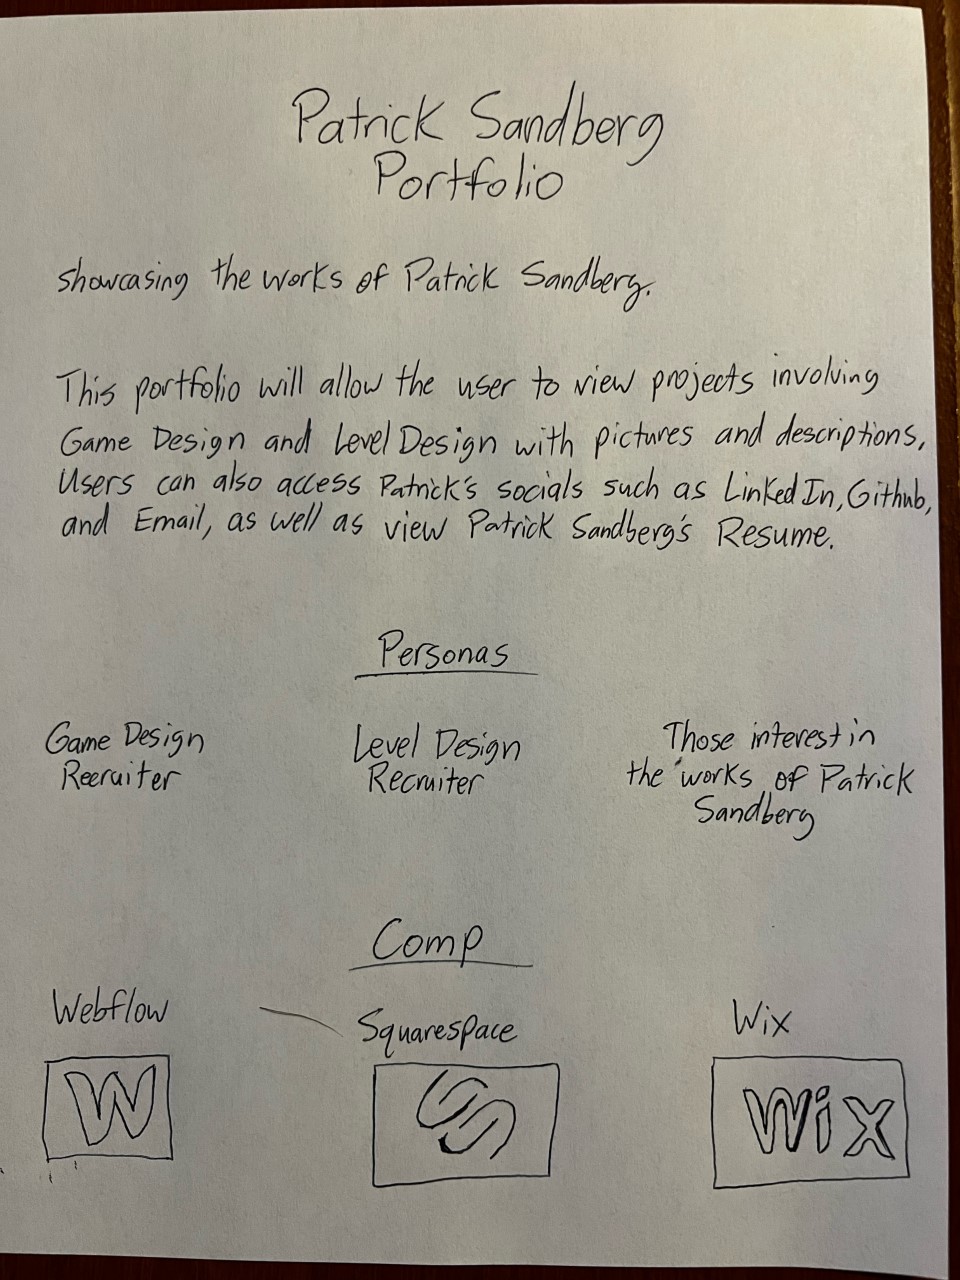 Patrick Sandberg
Portfolio
showcasing the works of Patrick Sandberg.
This portfolio will allow the user to view projects involving
Game Design and Level Design with pictures and descriptions,
Users can also access Patrick's socials such as LinkedIn, Github,
and Email, as well as view Patrick Sandberg's Resume.
Personas
Game Design
Recruiter
Level Design
Recruiter
Those interest in
the works of Patrick
Sandberg
Comp
Webflow
Squarespace
Wix
W
Wix